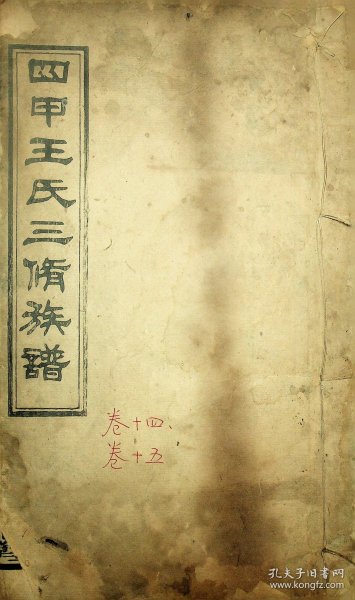 四甲王氏三脩族譜
卷十四
卷十五
孔夫子旧书网
www.kongfz.com